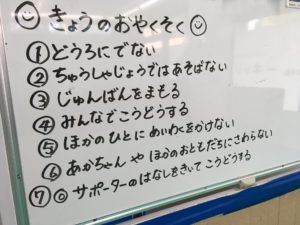 きょうのおやくそく
① どうろにでない
② ちゅうしゃじょうではあそばない
③ じゅんばんをまもる
④ みんなでこうどうする
⑤ ほかのひとにめいわくをかけない
⑥ あかちゃんやほかのおともだちにさわらない
⑦ ◎ サポーターのはなしをきいてこうどうする